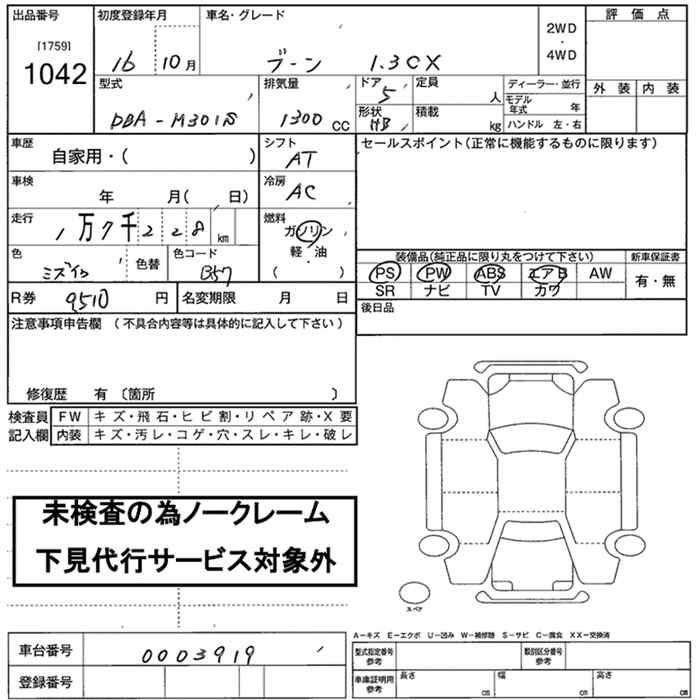 出品番号 初度登録年月 車名・グレード 2WD ・ 4WD 評価点
[1759]
1042 16 10月 ブーン 1.3CX
外装 内装
型式 排気量 ドア 定員 ディーラー・並行
DBA-M301S 1300 CC 5 人 モデル年式 年
形状 HB 積載 kg ハンドル 左・右
車歴 シフト セールスポイント(正常に機能するものに限ります)
自家用・( ) AT
車検 年 月( 日) 冷房 AC
走行 1万7千228 km 燃料 ガソリン
軽・油
( )
色 ミズイロ 色替 色コード B57
装備品(純正品に限り丸をつけて下さい) 新車保証書
PS PW ABS エアB AW 有・無
SR ナビ TV カワ
R券 9510 円 名変期限 月 日 後日品
注意事項申告欄 (不具合内容等は具体的に記入して下さい)
修復歴 有 〔箇所 〕
検査員 FW キズ・飛石・ヒビ割・リペア跡・X要
記入欄 内装 キズ・汚レ・コゲ・穴・スレ・キレ・破レ
未検査の為ノークレーム
下見代行サービス対象外
スペア
A-キズ E-エクボ U-凹み W-補修跡 S-サビ C-腐食 XX-交換済
車台番号 0003919 型式指定番号 参考 類別区分番号 参考
登録番号 車庫証明用 参考 長さ cm 幅 cm 高さ cm